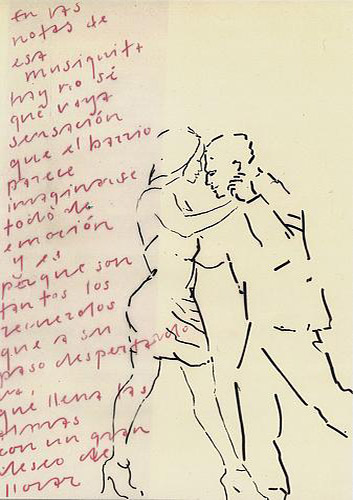 En las
notas de
esa
musiquita
hay no sé
qué vaga
sensación
que el barrio
parece
imaginarse
todo de
emoción
y es
porque son
tantos los
recuerdos
que a su
paso despertando
va,
que llena las
almas
con un gran
deseo de
llorar